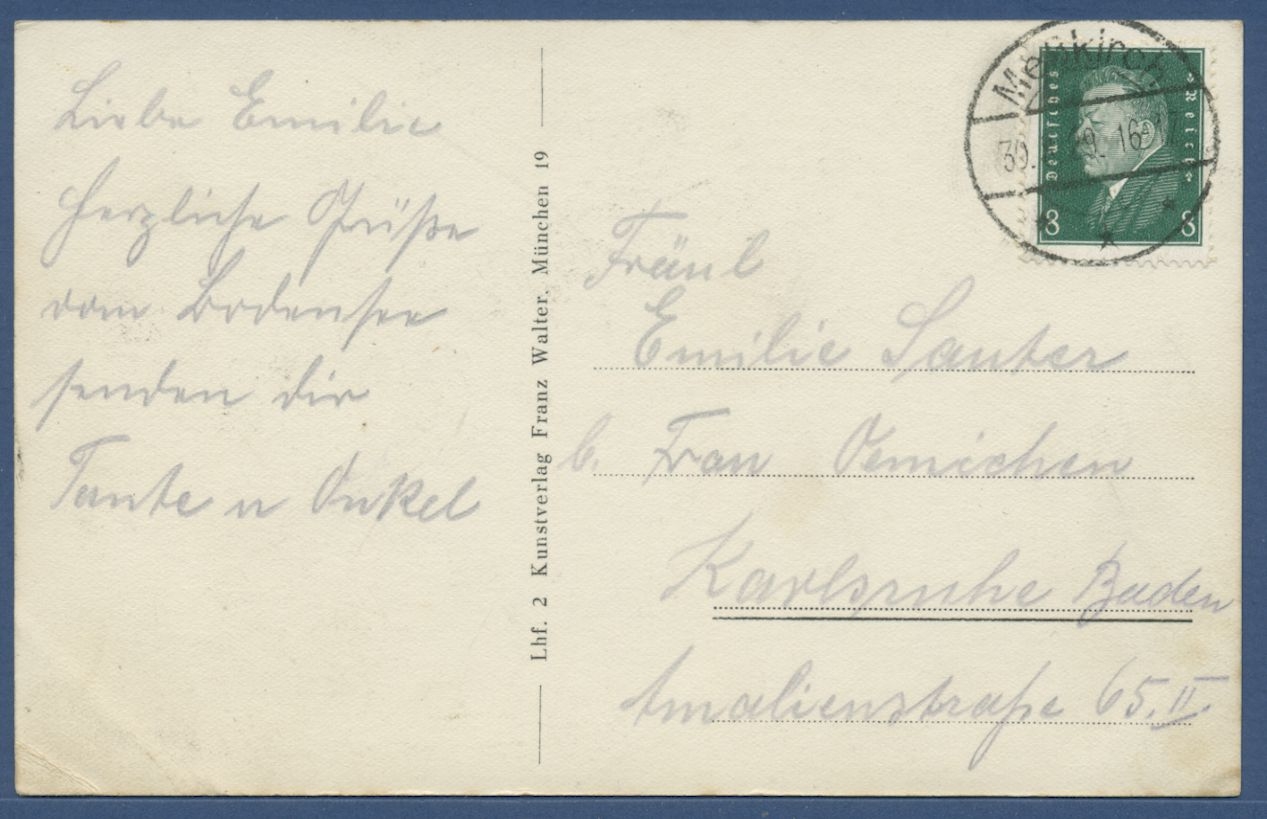 Liebe Emilie
Herzliche Grüße
vom Bodensee
senden dir
Tante u Onkel
Lhf. 2 Kunstverlag Franz Walter, München 19
Meßkirch
30. 16
Deutsches Reich
8 8
Fräul
Emilie Sauter
b. Frau Oemichen
Karlsruhe Baden
Amalienstraße 65.II.